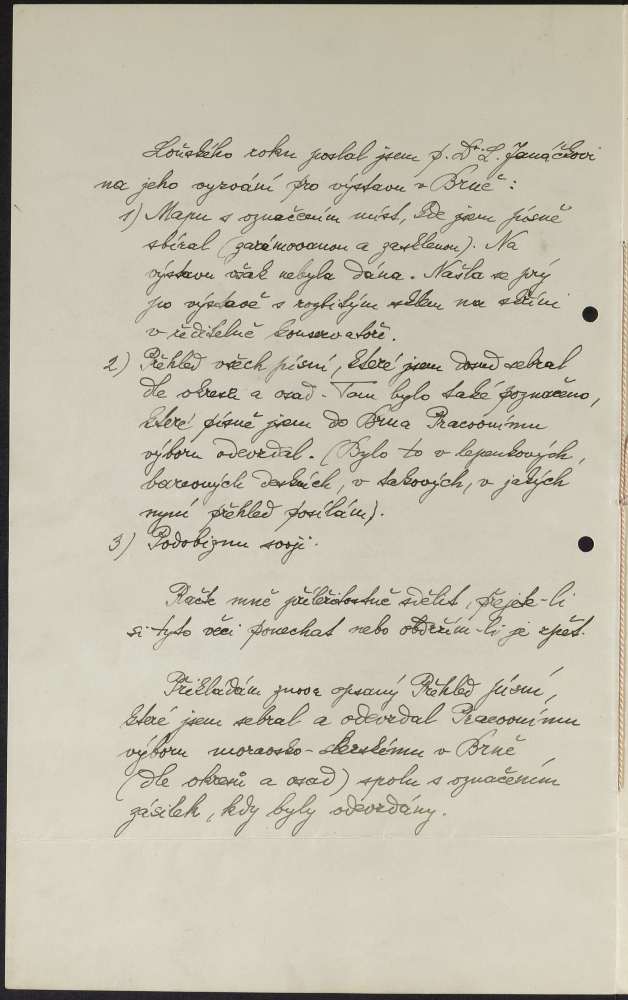 Loňského roku poslal jsem p. Dr L. Janáčkovi
na jeho vyzvání pro výstavu v Brně:
1) Mapu s označením míst, kde jsem písně
sbíral (zarámovanou a zasklenou). Na
výstavu však nebyla dána. Našla se prý
po výstavě s rozbitým sklem na skříni
v ředitelně konservatoře.
2) Přehled všech písní, které jsem dosud sebral
dle okresů a osad. Tam bylo také poznačeno,
které písně jsem do Brna Pracovnímu
výboru odevzdal. (Bylo to v lepenkových,
barevných deskách, v takových, v jakých
nyní přehled posílám).
3) Podobiznu svoji.
Račte mně příležitostně sdělit, přejete-li
si tyto věci ponechat nebo obdržím-li je zpět.
Přikládám znova opsaný Přehled písní,
které jsem sebral a odevzdal Pracovnímu
výboru moravsko-slezskému v Brně
(dle okresů a osad) spolu s označením
zásilek, kdy byly odevzdány.